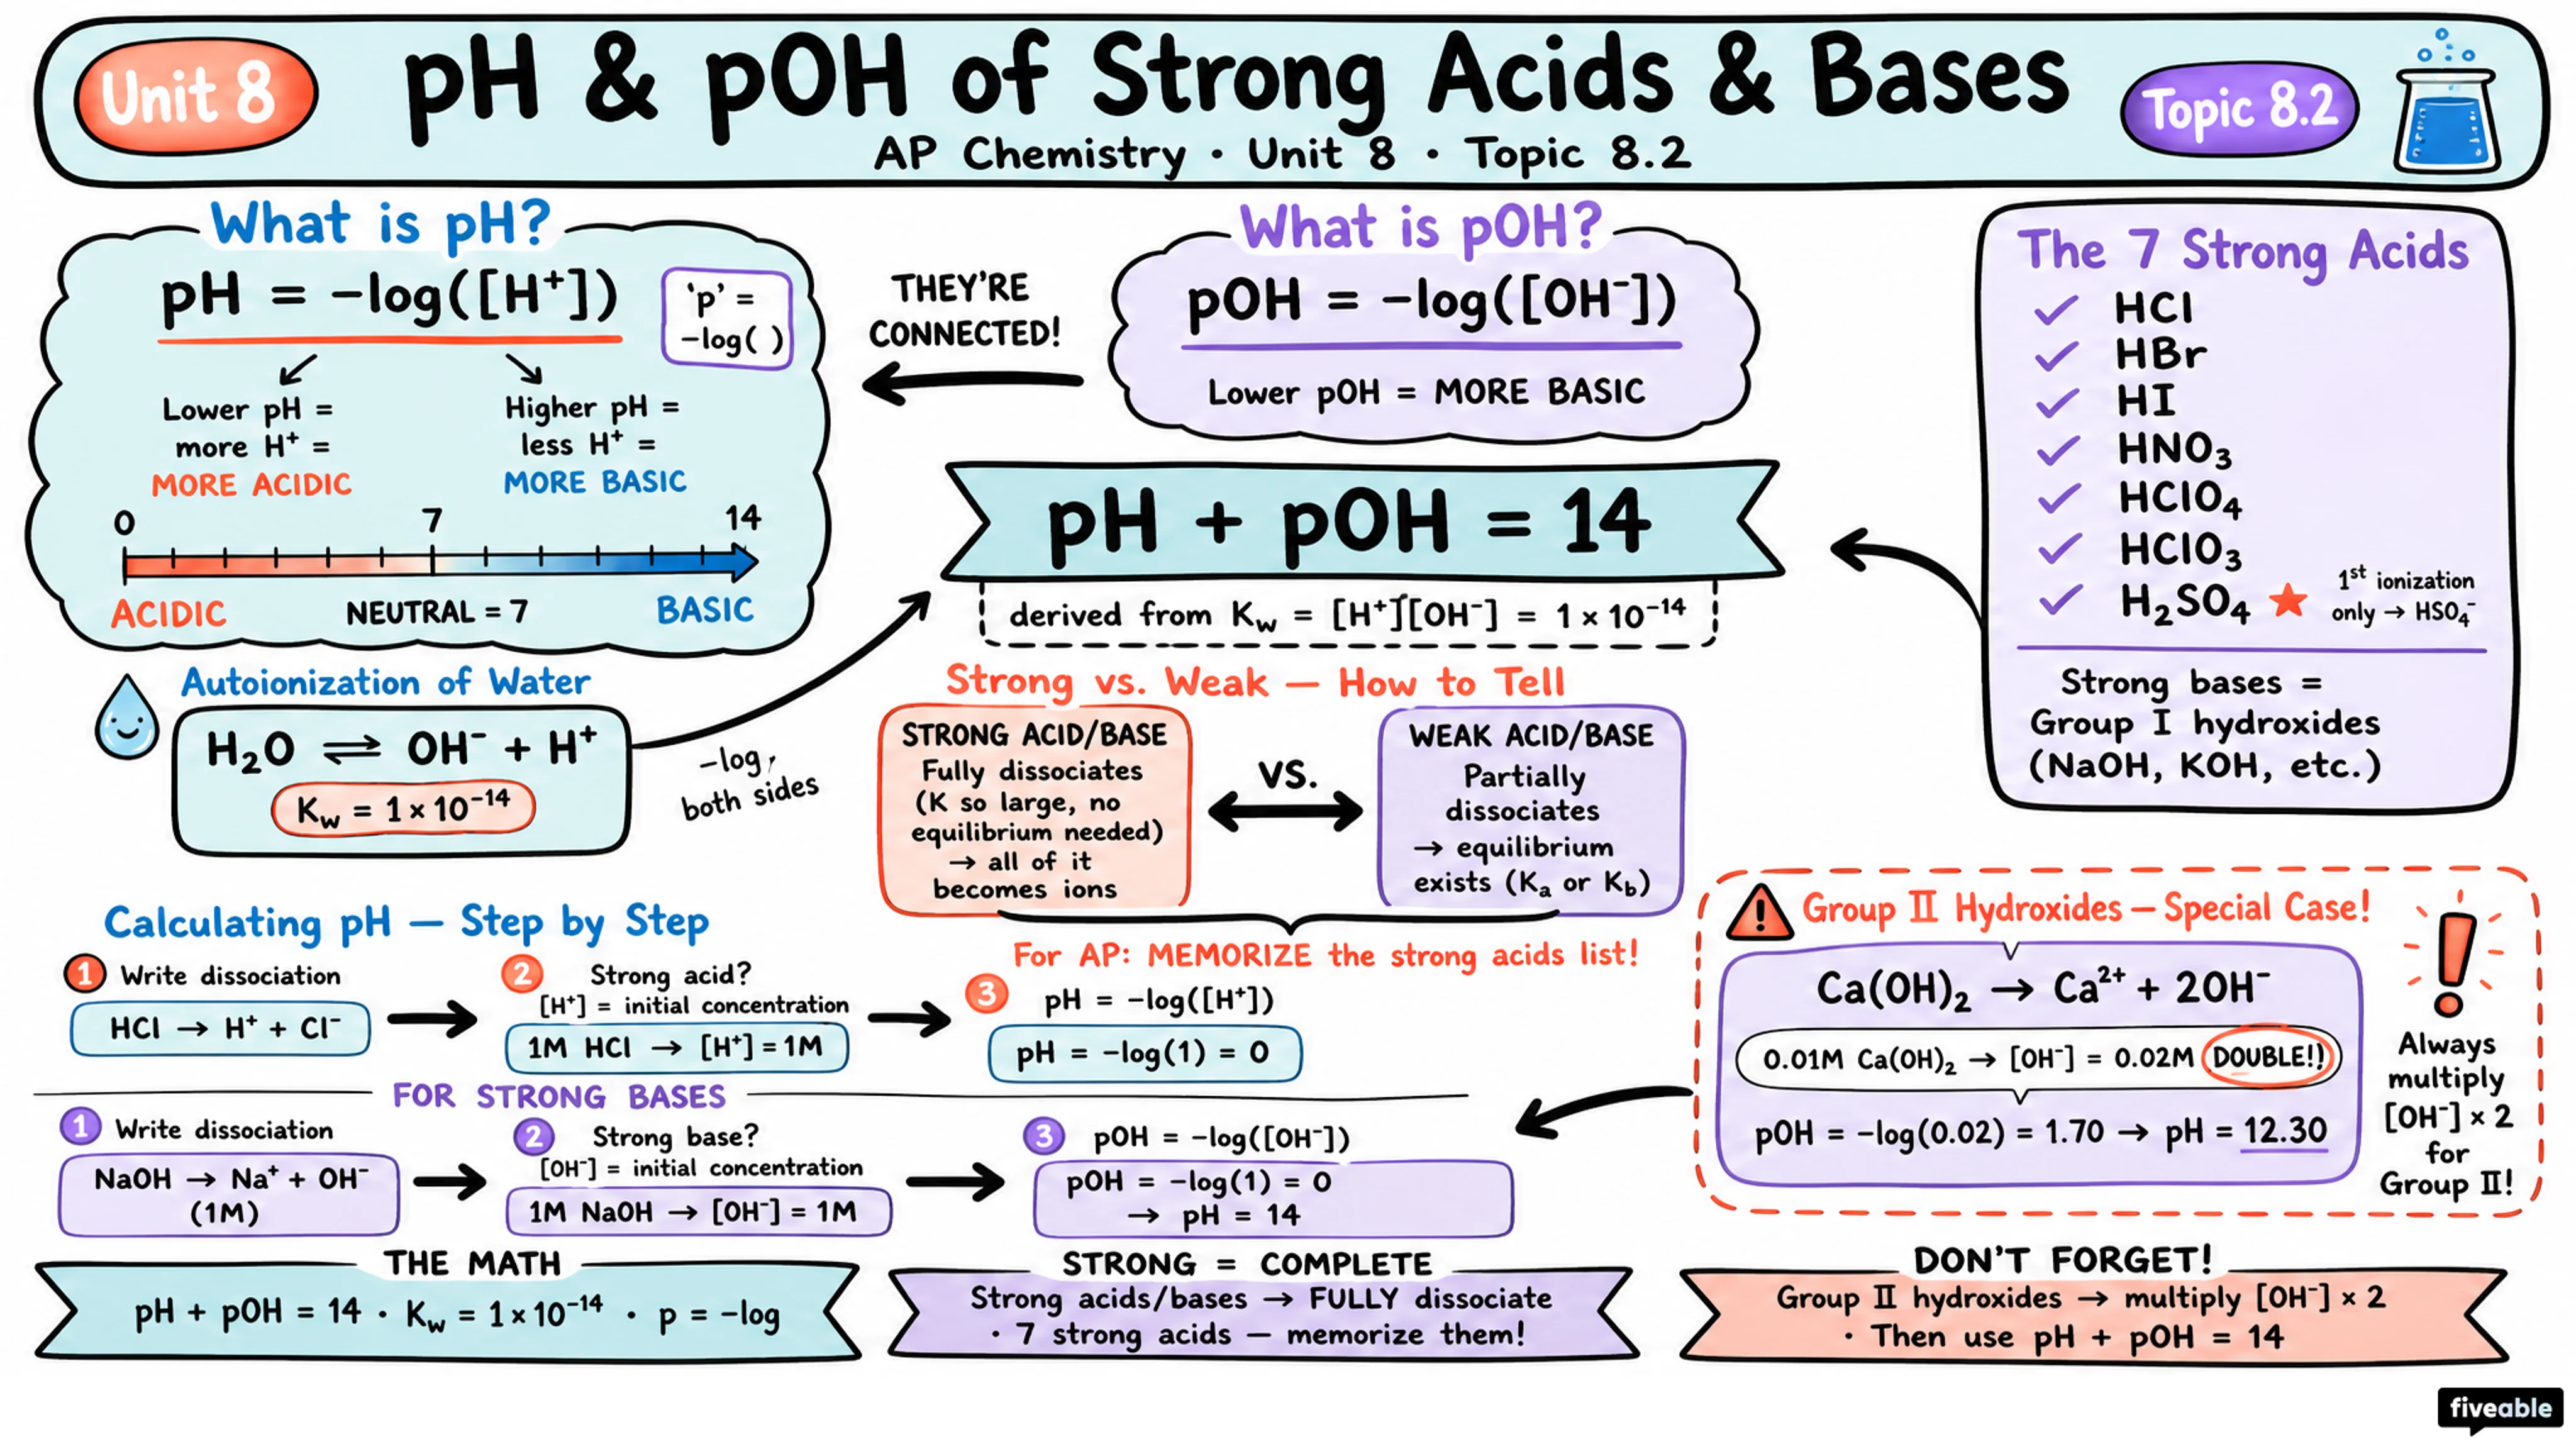 Unit 8
pH & pOH of Strong Acids & Bases
AP Chemistry · Unit 8 · Topic 8.2
Topic 8.2
What is pH?
pH = -log([H⁺])
'p' =
-log( )
Lower pH =
more H⁺ =
MORE ACIDIC
Higher pH =
less H⁺ =
MORE BASIC
0 7 14
ACIDIC NEUTRAL = 7 BASIC
THEY'RE
CONNECTED!
What is pOH?
pOH = -log([OH⁻])
Lower pOH = MORE BASIC
pH + pOH = 14
derived from K_w = [H⁺][OH⁻] = 1 × 10⁻¹⁴
The 7 Strong Acids
✓ HCl
✓ HBr
✓ HI
✓ HNO₃
✓ HClO₄
✓ HClO₃
✓ H₂SO₄ ★ 1st ionization
only → HSO₄⁻
Strong bases =
Group I hydroxides
(NaOH, KOH, etc.)
Autoionization of Water
H₂O ⇌ OH⁻ + H⁺
K_w = 1 × 10⁻¹⁴
-log,
both sides
Strong vs. Weak — How to Tell
STRONG ACID/BASE
Fully dissociates
(K so large, no
equilibrium needed)
→ all of it
becomes ions
VS.
WEAK ACID/BASE
Partially
dissociates
→ equilibrium
exists (Kₐ or K_b)
For AP: MEMORIZE the strong acids list!
Calculating pH — Step by Step
1 Write dissociation
HCl → H⁺ + Cl⁻
2 Strong acid?
[H⁺] = initial concentration
1M HCl → [H⁺] = 1M
3 pH = -log([H⁺])
pH = -log(1) = 0
FOR STRONG BASES
1 Write dissociation
NaOH → Na⁺ + OH⁻
(1M)
2 Strong base?
[OH⁻] = initial concentration
1M NaOH → [OH⁻] = 1M
3 pOH = -log([OH⁻])
pOH = -log(1) = 0
→ pH = 14
Group II Hydroxides — Special Case!
Ca(OH)₂ → Ca²⁺ + 2OH⁻
0.01M Ca(OH)₂ → [OH⁻] = 0.02M DOUBLE!)
pOH = -log(0.02) = 1.70 → pH = 12.30
Always
multiply
[OH⁻] × 2
for
Group II!
THE MATH
pH + pOH = 14 · K_w = 1 × 10⁻¹⁴ · p = -log
STRONG = COMPLETE
Strong acids/bases → FULLY dissociate
· 7 strong acids — memorize them!
DON'T FORGET!
Group II hydroxides → multiply [OH⁻] × 2
· Then use pH + pOH = 14
fiveable